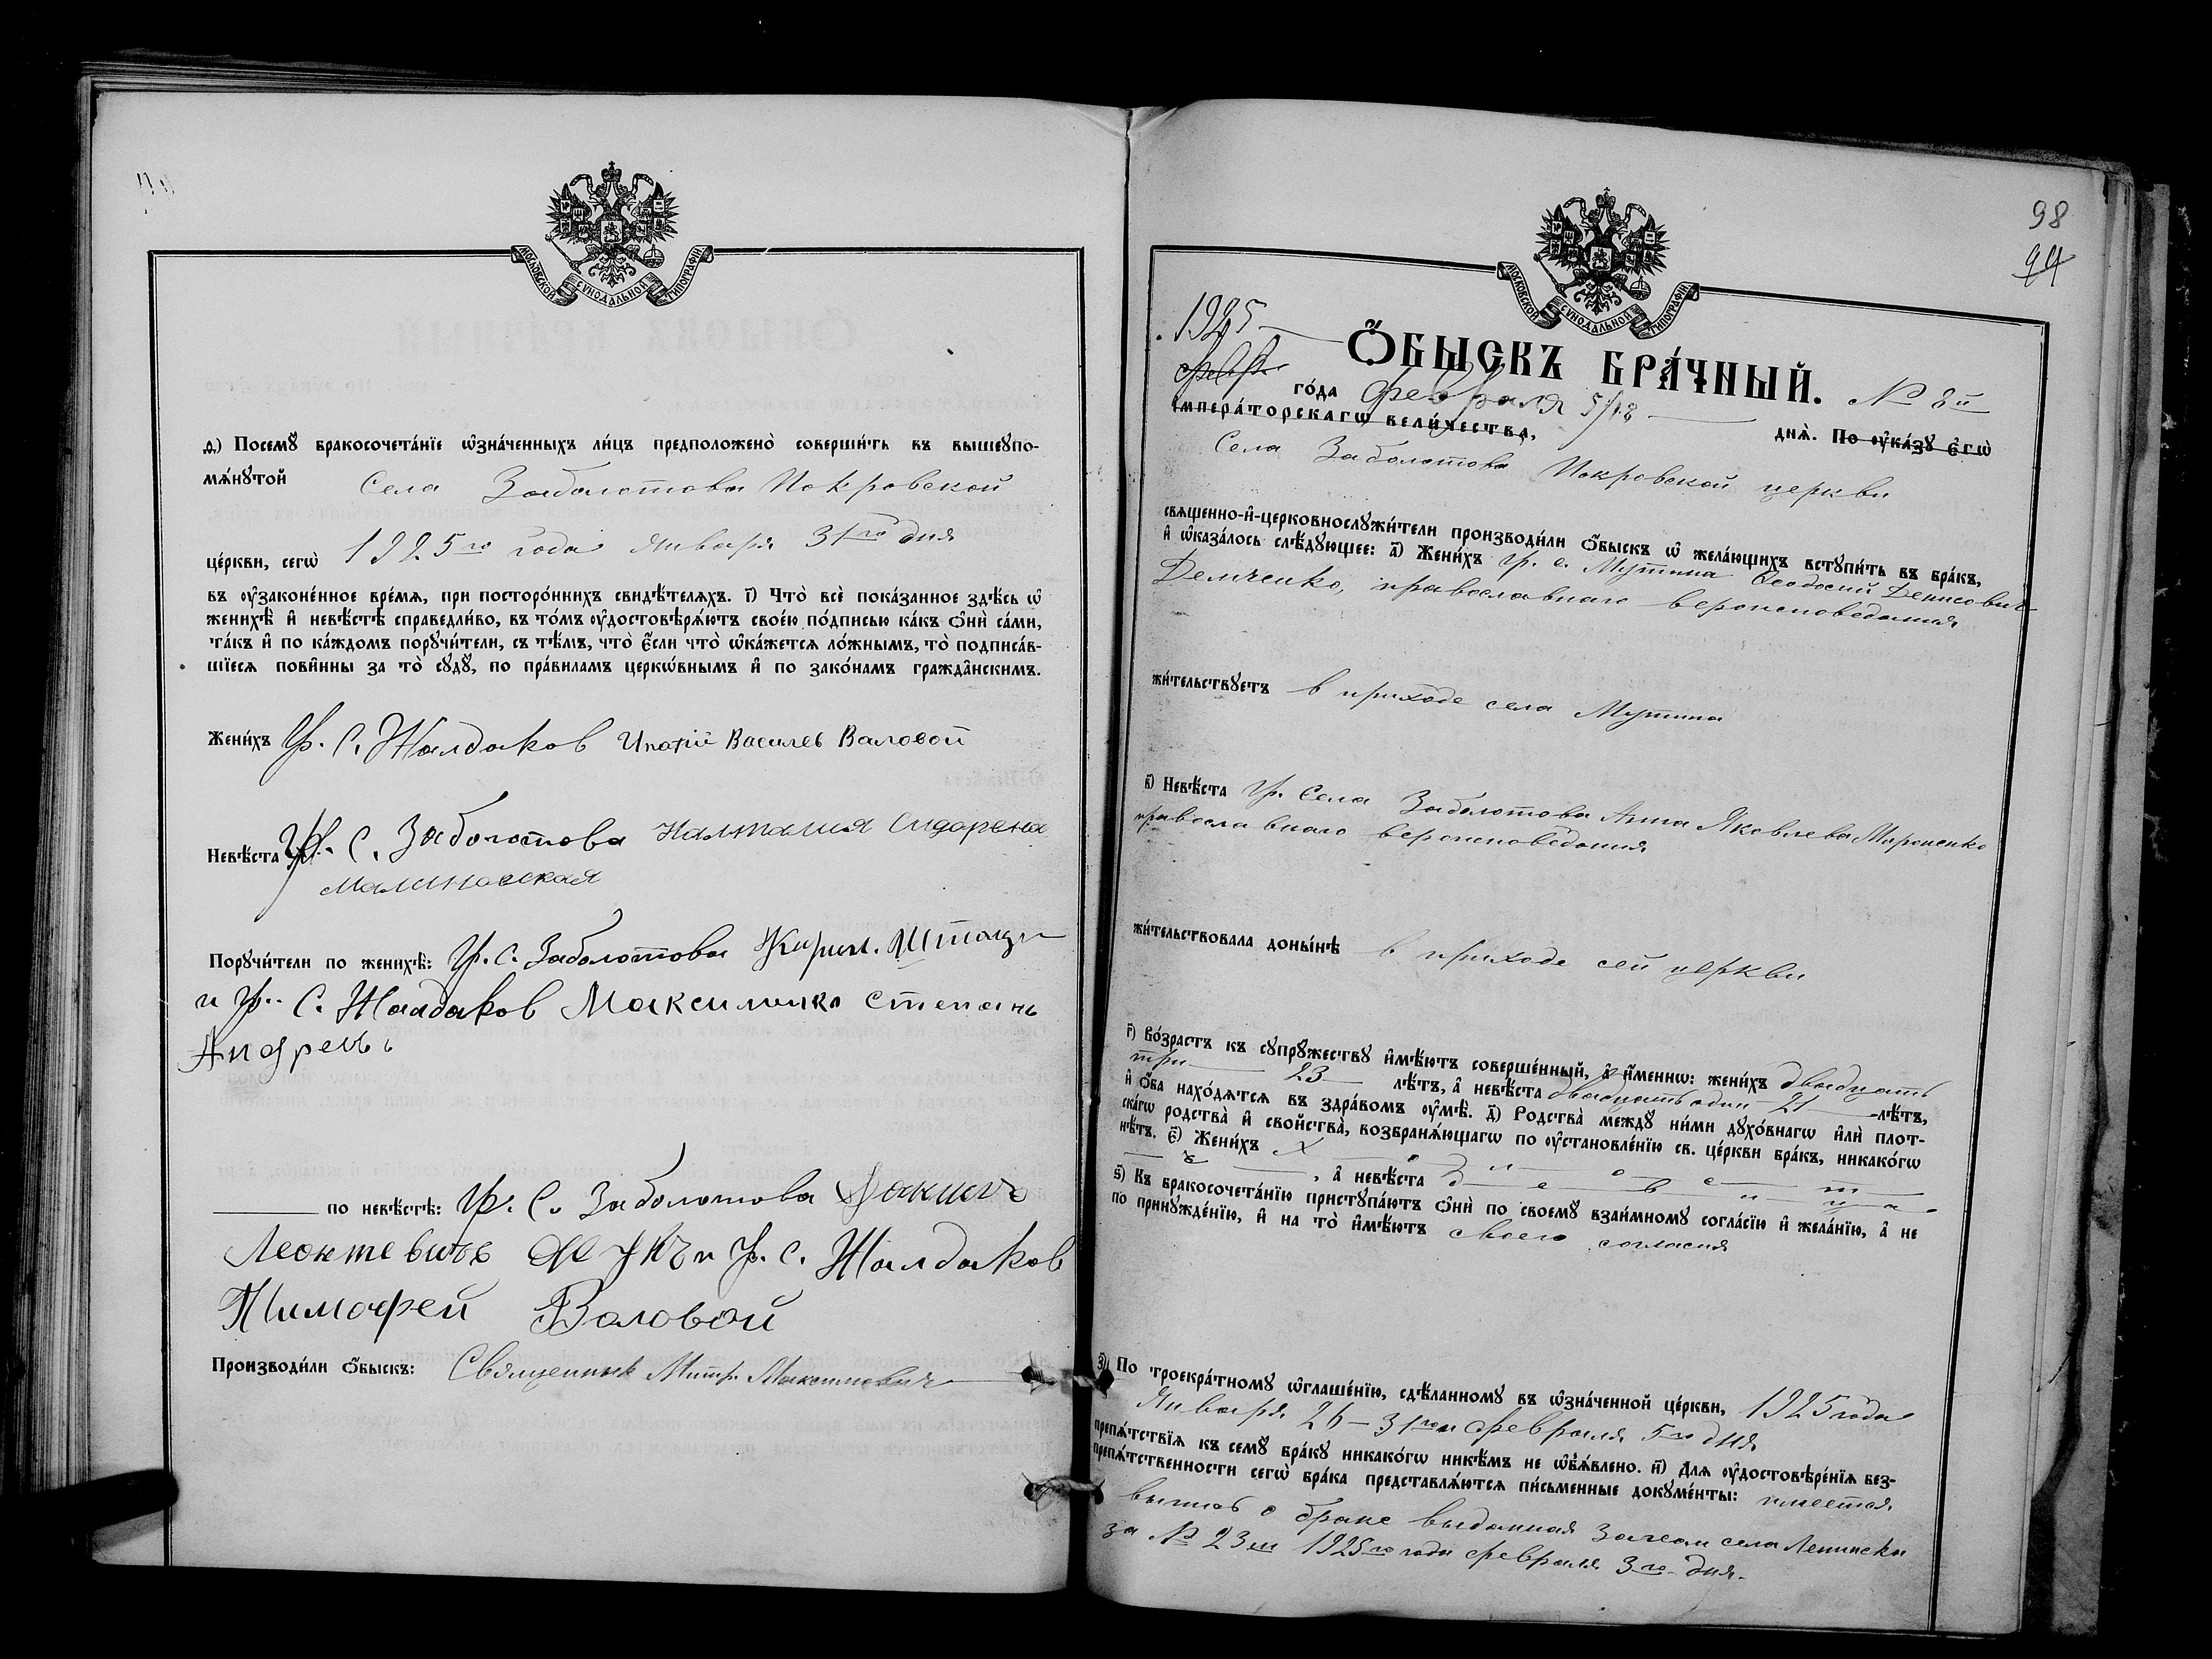 МОСКОВСКОЙ СѴНОДАЛЬНОЙ ТИПОГРАФІИ
д҃) Посемꙋ бракосочета́нїе ѡ҆зна́ченныхъ ли́цъ предположено̀ соверши́ть въ вышеꙋпо-
мѧ́нꙋтой Села Заболотова Покровской
це́ркви, сегѡ̀ 1925го года Января 31го дня
въ ѹ҆зако́ненное вре́мѧ, при посторо́ннихъ свидѣ́телѧхъ. і҃) Что̀ всѐ пока́занное здѣ́сь ѡ҆
женихѣ̀ и҆ невѣ́стѣ справедли́во, въ то́мъ ѹ҆достовѣрѧ́ютъ свое́ю по́дписью ка́къ ѻ҆нѝ са́ми,
та́къ и҆ по ка́ждомъ порꙋчи́тели, съ тѣ́мъ, что̀ є҆́сли что̀ ѡ҆ка́жетсѧ ло́жнымъ, то̀ подписа́в-
шїесѧ пови́нны за то̀ сꙋдꙋ̀, по пра́виламъ церкѡ́внымъ и҆ по зако́намъ гражда́нскимъ.
Жени́хъ Гр. С. Жалдаков Ипатій Василев Валовой
Невѣ́ста Гр. С. Заболотова Налталия Сидарена
Малиновская
Порꙋчи́тели по женихѣ̀: Гр. С. Заболотова Кирил.
и гр. С. Жалдаков Максименко Степань
Андреев
по невѣ́стѣ: Гр. С. Заболотова
Леонтевичь и гр. С. Жалдаков
Тимофей Валовой
Производи́ли ѻ҆́быскъ: Священник Митр.
98
94
МОСКОВСКОЙ СѴНОДАЛЬНОЙ ТИПОГРАФІИ
1925
Ѻ҆́БЫСКЪ БРА́ЧНЫЙ. № 8й
февр
го́да февраля 5/18 днѧ̀. По ѹ҆ка́зꙋ є҆гѡ̀
і҆мпера́торскагѡ вели́чества,
Села Заболотова Покровской церкви
свѧще́нно-и҆-церковнослꙋжи́тели производи́ли ѻ҆́быскъ ѡ҆ жела́ющихъ встꙋпи́ть въ бра́къ,
и҆ ѡ҆каза́лось слѣ́дꙋющее: а҃) Жени́хъ гр. с. Мутина Феодосий Денисович
Демченко, православнаго вероисповедания
жи́тельствꙋетъ в приходе села Мутина
в҃) Невѣ́ста гр. Села Заболотова Анна Яковлева Мироненко
православнаго вероисповедания
жи́тельствовала доны́нѣ в приходе сей церкви
г҃) Во́зрастъ къ сꙋпрꙋ́жествꙋ и҆мѣ́ютъ соверше́нный, а҆ и҆́меннѡ: жени́хъ двадцать
три 23 лѣ́тъ, а҆ невѣ́ста двадцать один 21 лѣ́тъ,
и҆ ѻ҆́ба нахо́дѧтсѧ въ здра́вомъ ѹ҆мѣ̀. д҃) Родства̀ междꙋ̀ ни́ми дꙋхо́внагѡ и҆лѝ плот-
ска́гѡ родства̀ и҆ сво́йства̀, возбранѧ́ющагѡ по ѹ҆становле́нїю св. це́ркви бра́къ, никако́гѡ
нѣ́тъ. є҃) Жени́хъ х о л о с т
ъ, а҆ невѣ́ста д е в и ц а
ѕ҃) Къ бракосочета́нїю пристꙋпа́ютъ ѻ҆нѝ по своемꙋ̀ взаи́мномꙋ согла́сїю и҆ жела́нїю, а҆ не
по принꙋжде́нїю, и҆ на то̀ и҆мѣ́ютъ своего согласия
з҃) По троекра́тномꙋ ѡ҆глаше́нїю, сдѣ́ланномꙋ въ ѡ҆зна́ченной це́ркви, 1925 года
Января 26 – 31го и февраля 5го дня
препѧ́тствїѧ къ семꙋ̀ бра́кꙋ никако́гѡ никѣ́мъ не ѡ҆б̾ѧ́влено. и҃) Для ѹ҆достовѣре́нїѧ без-
препѧ́тственности сегѡ̀ бра́ка представлѧ́ютсѧ пи́сьменные докꙋме́нты: имеется
выпис о браке выданная Загсом села Ленинска
за № 23м 1925го года февраля 3го дня.